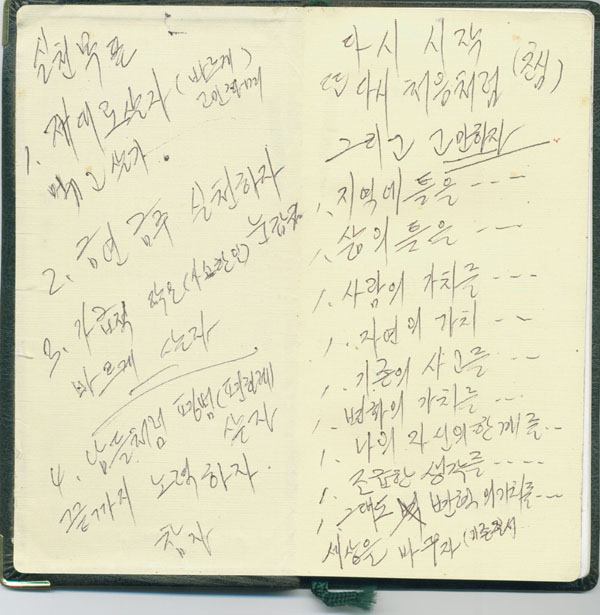 실천 목표
1. 제대로 살자 (바르게)
먹고 살자.
2. 금연 금주 실천하자
3. 가급적 작은 (사소한 일)
바르게 살자
4. 남들처럼 평범 (편하게)
살자
끝까지 노력하자.
참자
다시 시작
또 다시 처음처럼 (초심)
그리고 고민하자
1. 지역에 틀을 ----
1. 삶의 틀을 ---
1. 사람의 가치를 ---
1. 자연의 가치 ---
1. 기존의 사고를 ---
1. 변화의 가치를 ---
1. 나의 자신의 한계를 --
1. 조급한 생각을 ----
1. 그래도 변혁의 가치를 ---
세상을 바꾸자 (기존질서